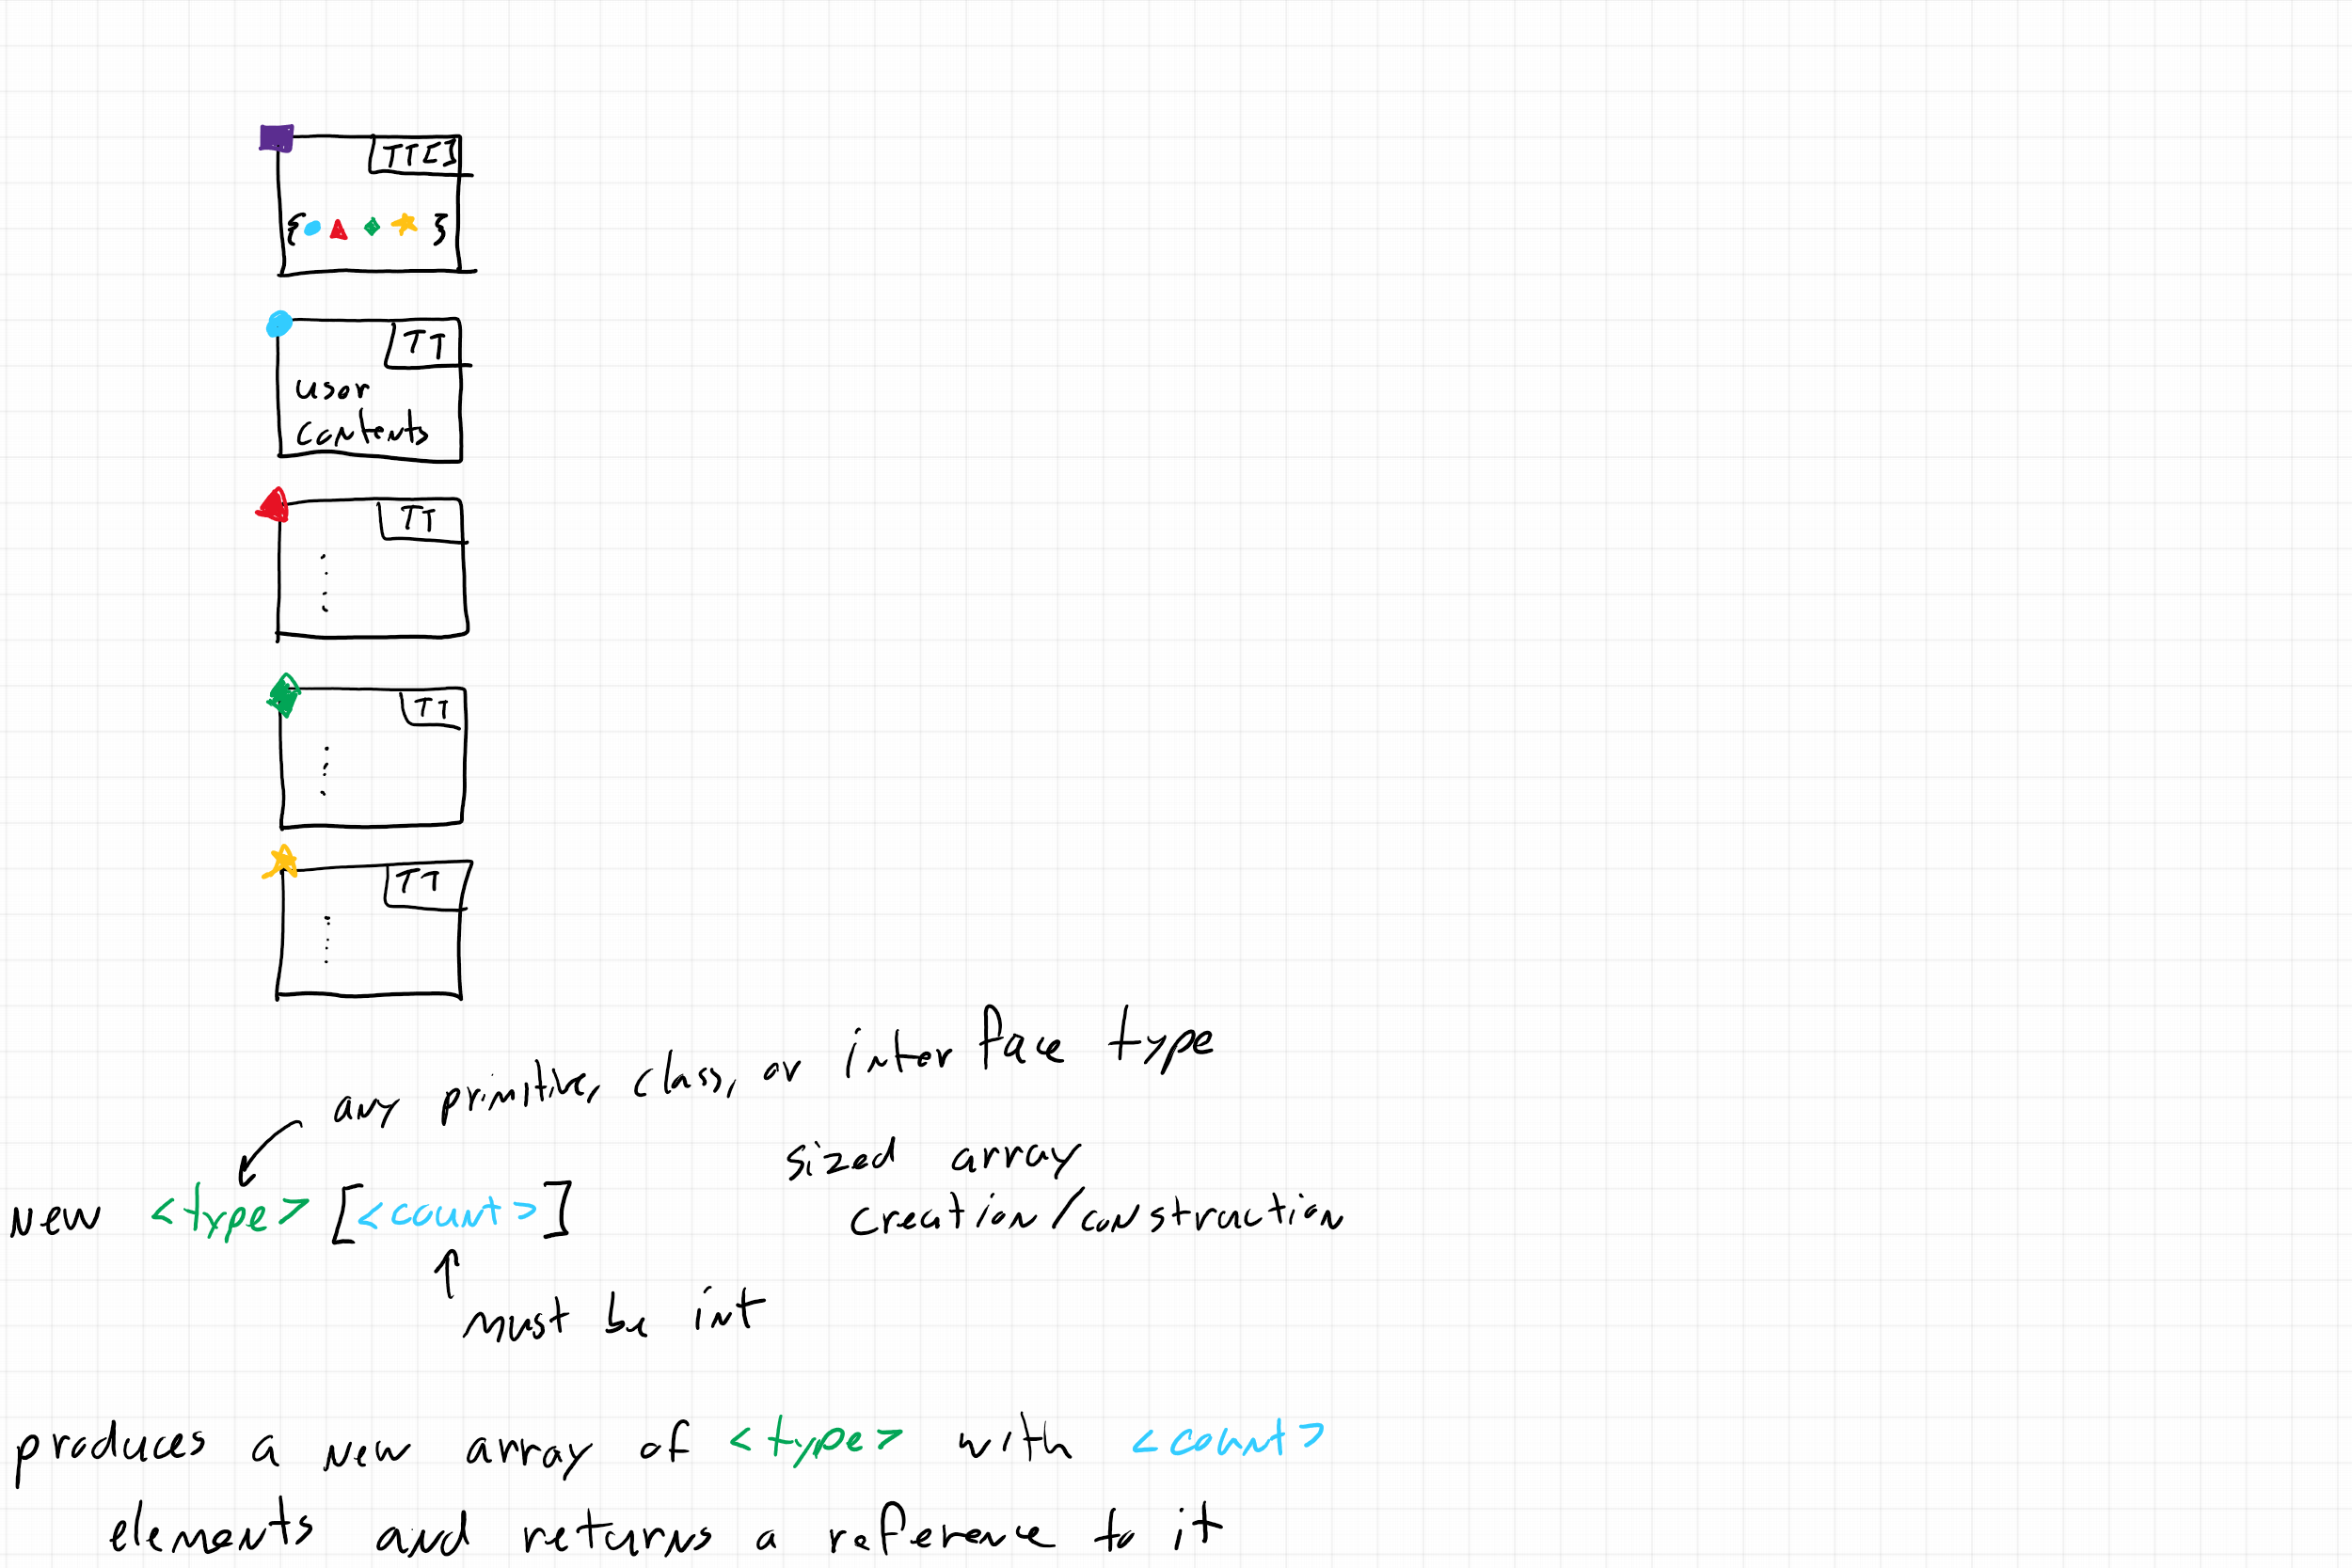 TT[]
{ }
TT
usor
contents
TT
TT
TT
any primitive, class, or interface type
sized array
new <type> [<count>]
creation/construction
must be int
produces a new array of <type> with <count>
elements and returns a reference to it